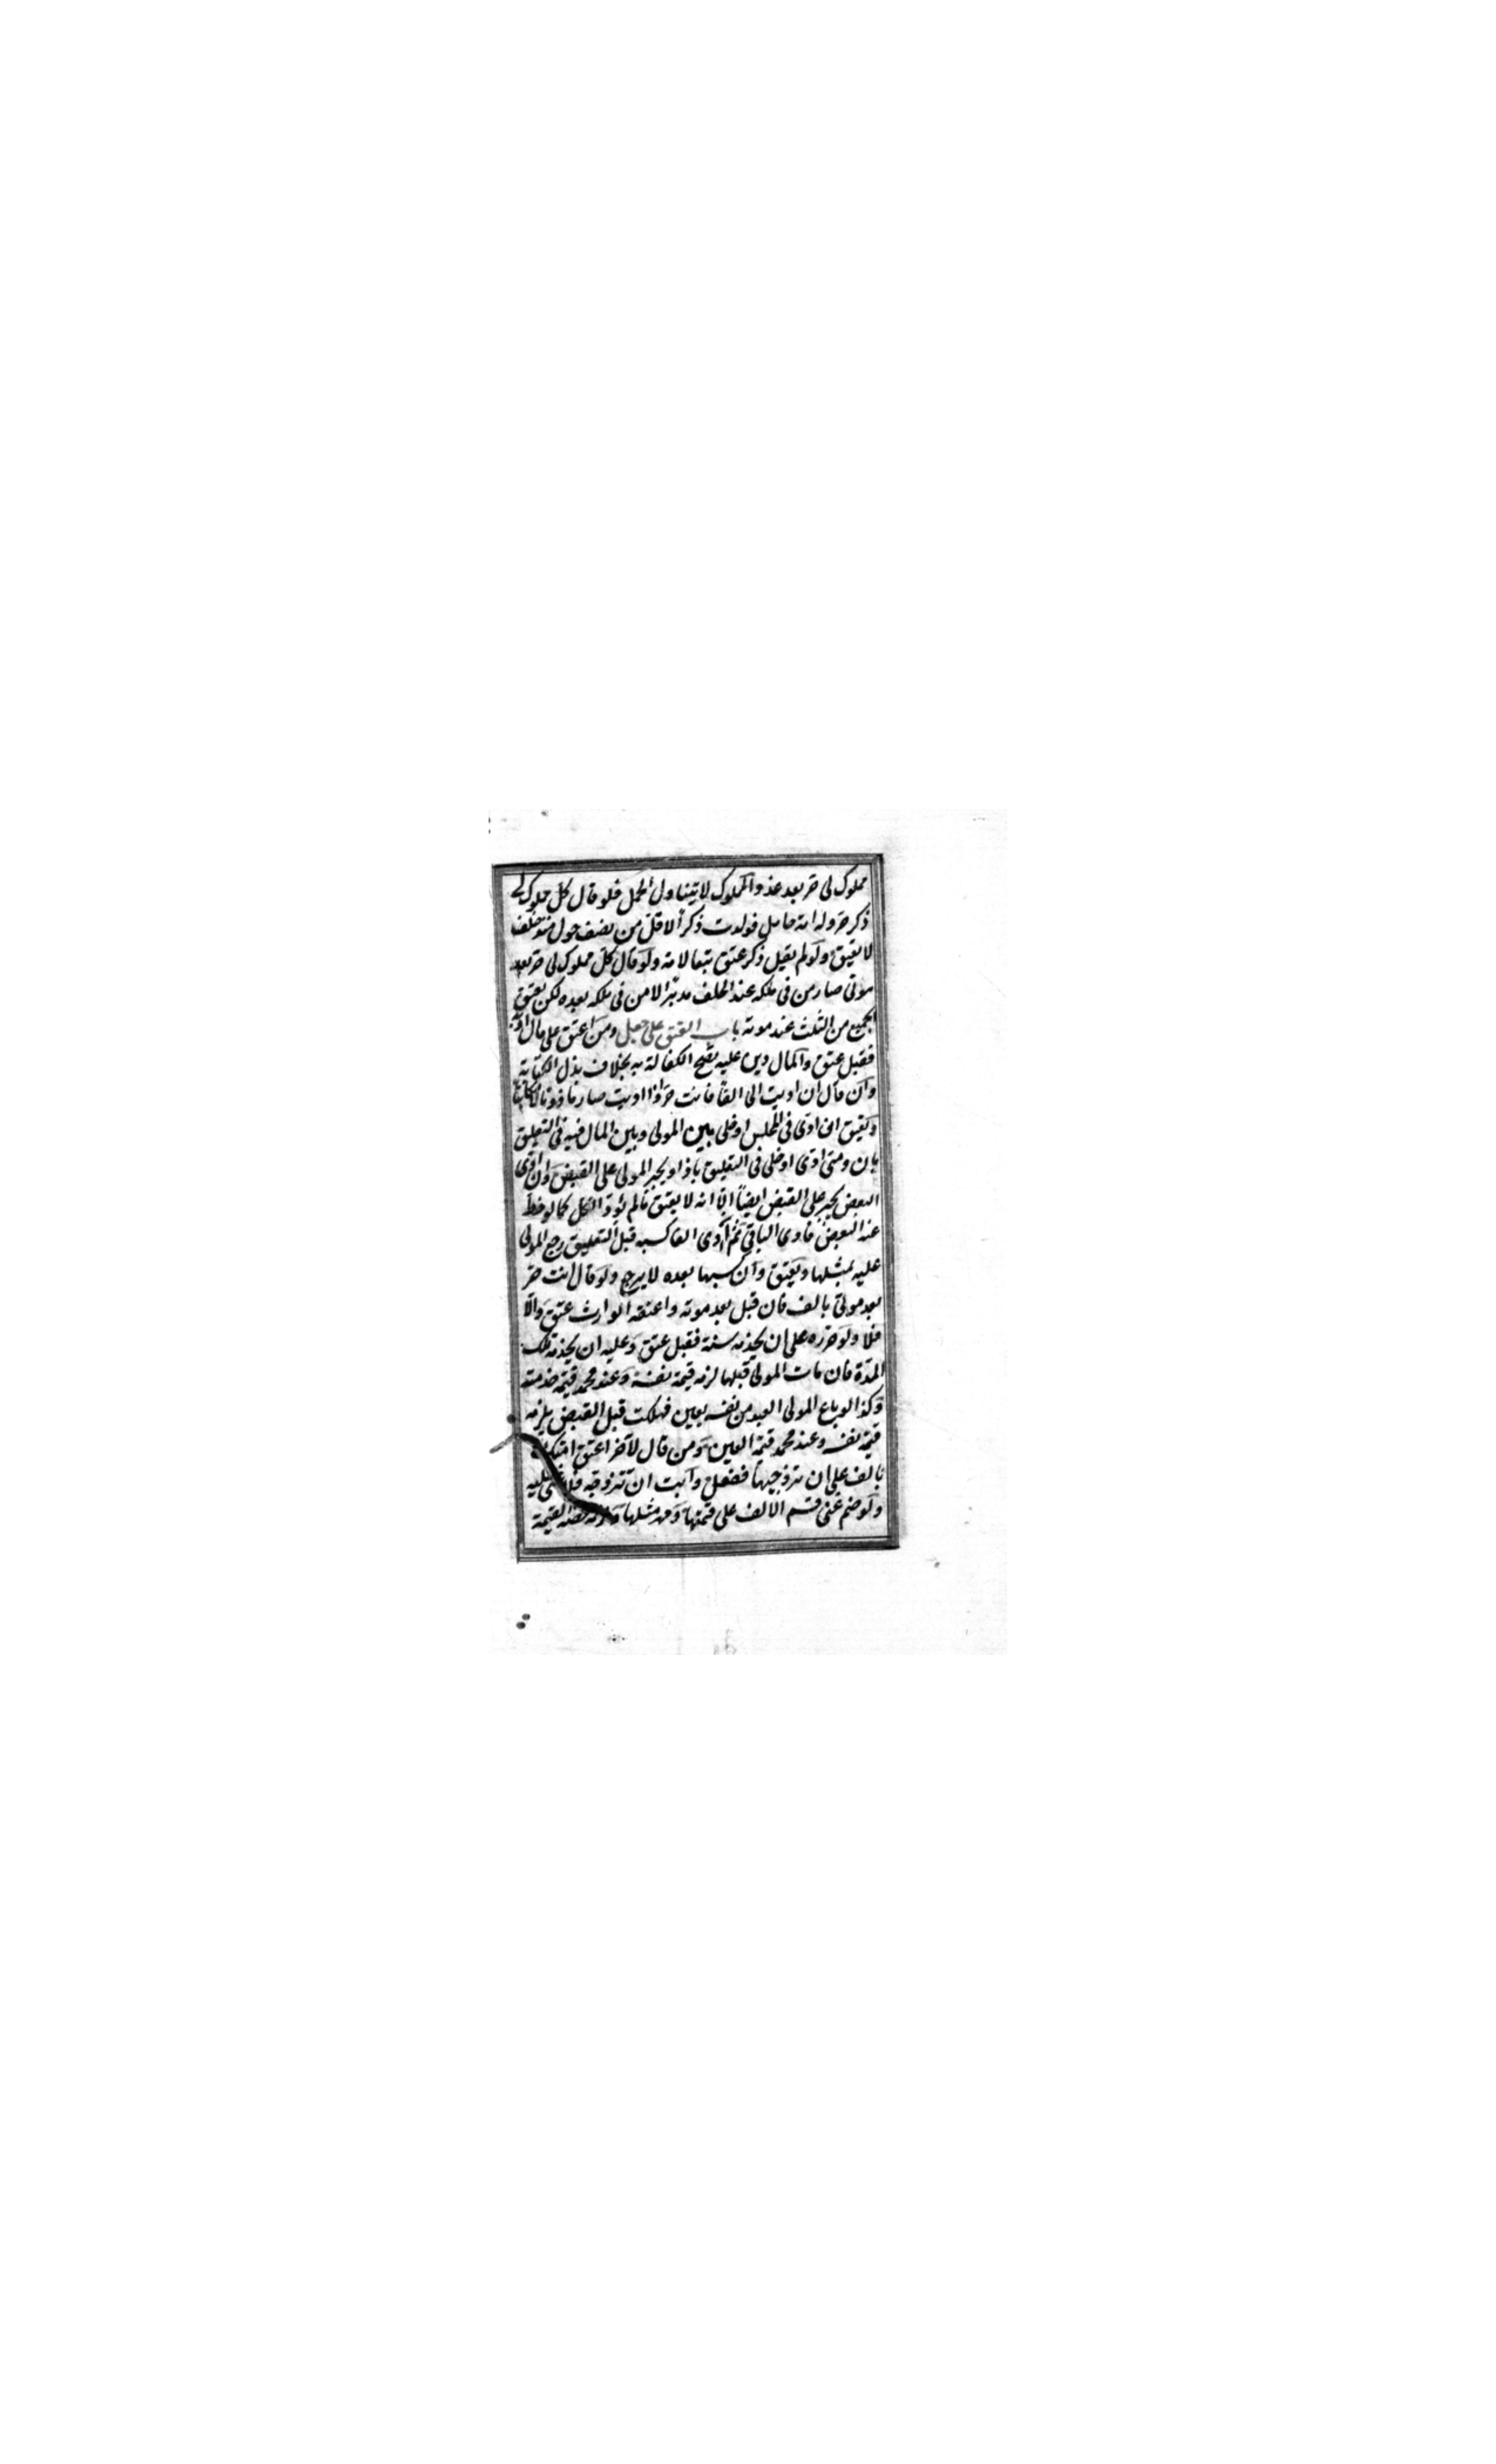 مملوك لى حر بعد غد والمملوك لا يتناول الحمل فلو قال كل مملوك لى
ذكر حر وله امة حامل فولدت ذكرا لاقل من نصف حول منذ حلف
لا يعتق ولو لم يقل ذكر عتق تبعا لامه ولو قال كل مملوك لى حر بعد
موتى صار من فى ملكه عند الحلف مدبرا لا من فى ملكه بعده لكن يعتق
الجميع من الثلث عند موته باب العتق على جعل ومن اعتق على مال او به
فقبل عتق والمال دين عليه يصح الكفالة به بخلاف بدل الكتابة
وان قال ان اديت الى الفا فانت حر او اذا اديت صار مأذونا لا مكاتبا
ويعتق ان ادى فى المجلس او خلى بين المولى وبين المال فيه فى التعليق
بان ومتى ادى او خلى فى التعليق باذا ويجبر المولى على القبض وان ادى
البعض يجبر على القبض ايضا الا انه لا يعتق ما لم يؤد الكل كما لو حط
عنه البعض فادى الباقى ثم ان ادى الفا كسبه قبل التعليق رجع المولى
عليه بمثلها ويعتق وان كسبها بعده لا يرجع ولو قال انت حر
بعد موتى بالف فان قبل بعد موته واعتقه الوارث عتق والا
فلا ولو حرره على ان يخدمه سنة فقبل عتق وعليه ان يخدمه تلك
المدة فان مات المولى قبلها لزمه قيمة نفسه وعند محمد قيمة خدمته
وكذا لو باع المولى العبد من نفسه بعين فهلكت قبل القبض يلزمه
قيمة نفسه وعند محمد قيمة العين ومن قال لآخر اعتق امتك
بالف على ان تزوجيها ففعل وابت ان تتزوجه فلا شئ عليه
ولو ضم عنى قسم الالف على قيمتها ومهر مثلها ولزمه حصة القيمة